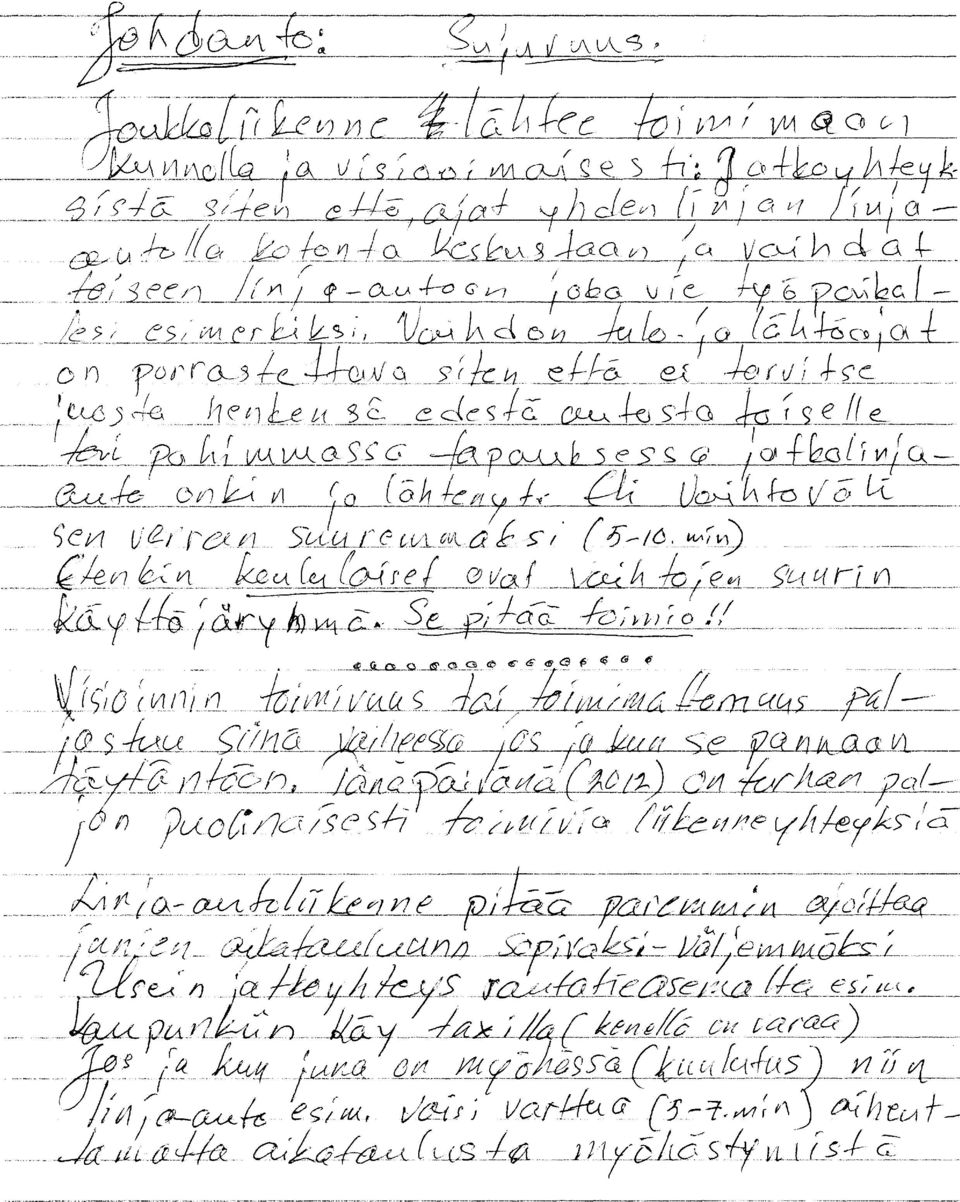 Johdanto: Sujuvuus.
Joukkoliikenne lähtee toimimaan
kunnolla ja visiooimaisesti: Jatkoyhteyk-
sistä siten että, ajat yhden linjan linja-
autolla kotonta keskustaan ja vaihdat
toiseen linja-autoon joka vie työpaikal-
lesi esimerkiksi. Vaihdon tulo- ja lähtöajat
on porrastettava siten että ei tarvitse
juosta henkensä edestä autosta toiselle
tai pahimmassa tapauksessa jatkolinja-
auto onkin jo lähtenyt. Eli Vaihtoväli
sen verran suuremmaksi (5-10. min)
Etenkin koululaiset ovat vaihtojen suurin
käyttäjäryhmä. Se pitää toimia!!
Visioinnin toimivuus tai toimimattomuus pal-
jastuu siinä vaiheessa jos ja kun se pannaan
täytäntöön. Tänäpäivänä (2012) on turhan pal-
jon puolinaisesti toimivia liikenneyhteyksiä
Linja-autoliikenne pitää paremmin ajoittaa
junien aikatauluunn sopivaksi-väljemmäksi
Usein jatkoyhteys rautatieasemalta esim.
kaupunkiin käy taxilla (kenellä on varaa)
Jos ja kun juna on myöhässä (kuulutus) niin
linja-auto esim. voisi varttua (5-7.min) aiheut-
tamatta aikataulusta myöhästymistä